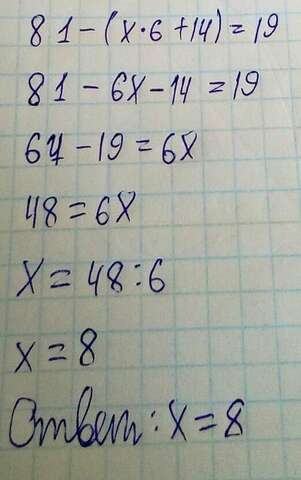 81-(x·6+14)=19
81-6x-14=19
67-19=6x
48=6x
x=48:6
x=8
Ответ: x=8